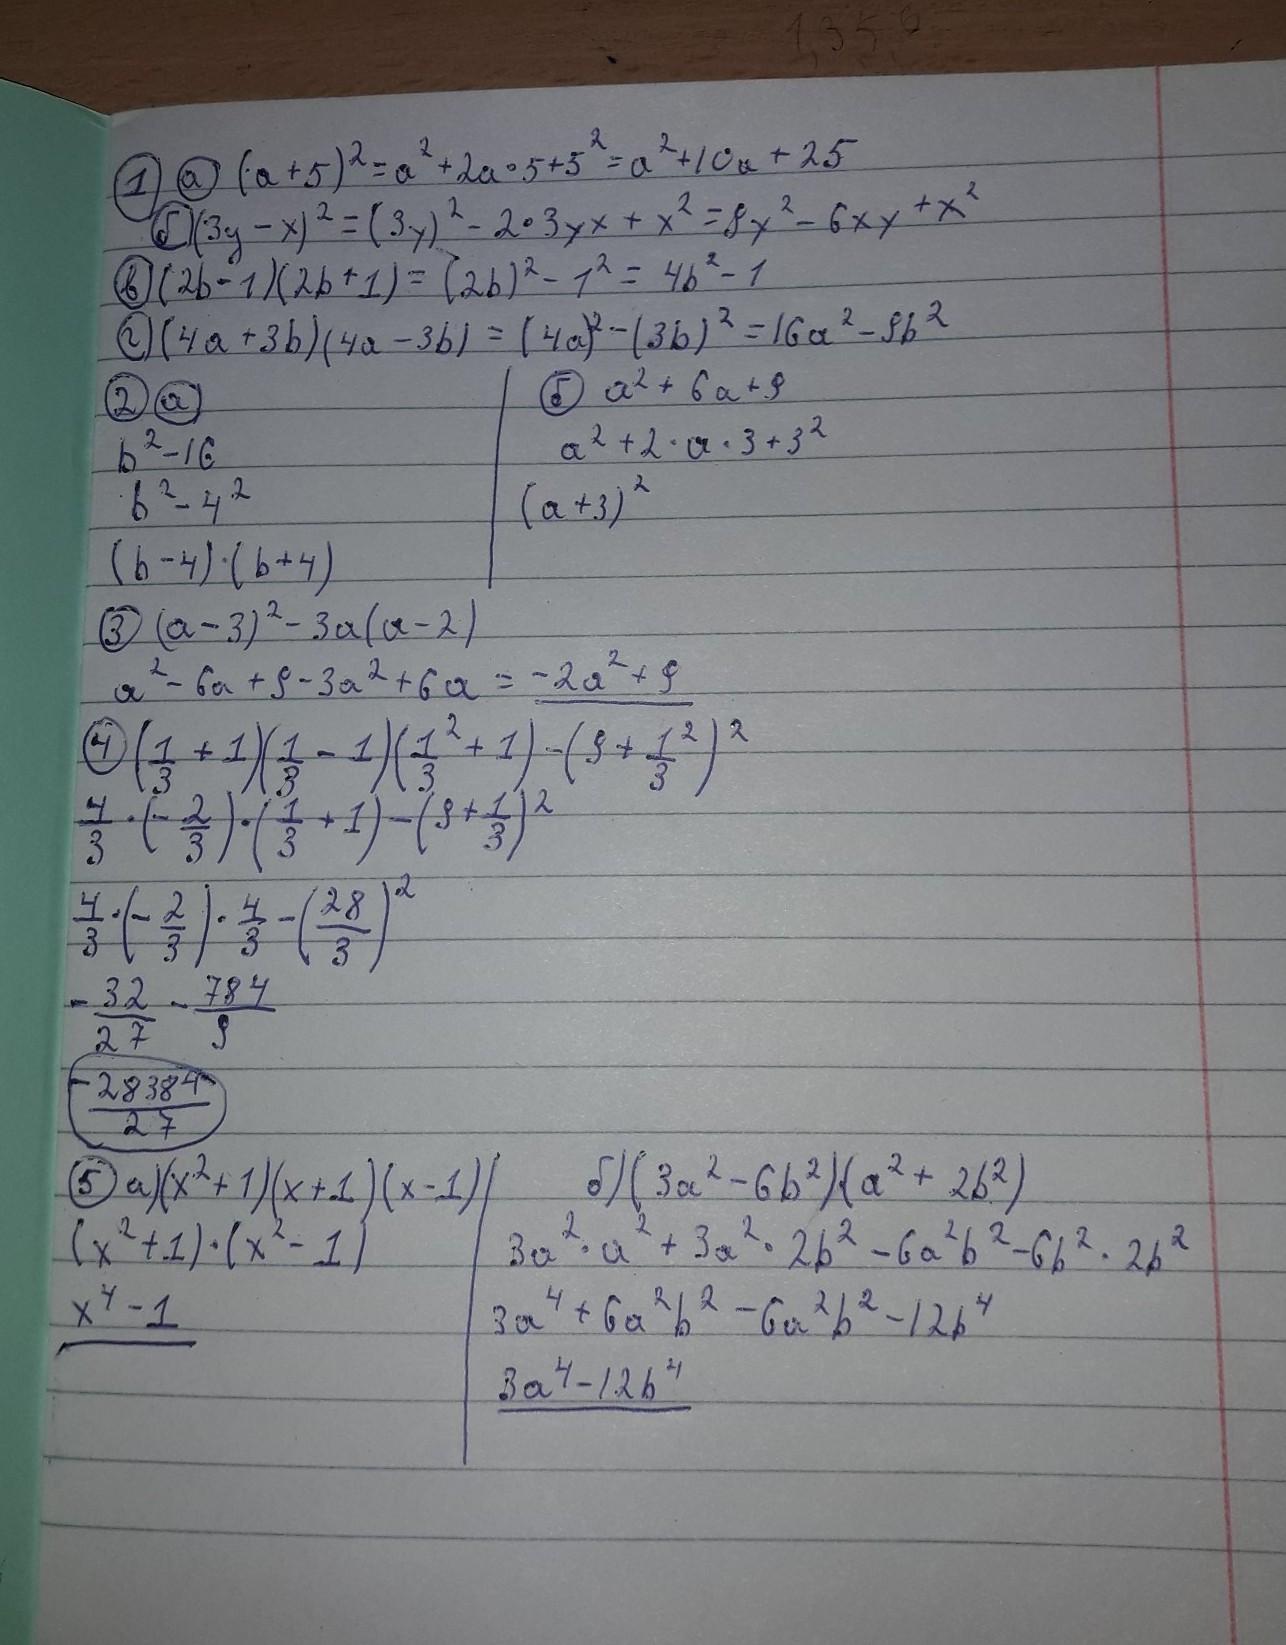 1356
① а) (a+5)² = a² + 2a·5 + 5² = a² + 10a + 25
б) (3y - x)² = (3y)² - 2·3yx + x² = 9y² - 6xy + x²
в) (2b-1)(2b+1) = (2b)² - 1² = 4b² - 1
г) (4a+3b)(4a-3b) = (4a)² - (3b)² = 16a² - 9b²
② а)
b² - 16
b² - 4²
(b-4)·(b+4)
б) a² + 6a + 9
a² + 2·a·3 + 3²
(a+3)²
③ (a-3)² - 3a(a-2)
a² - 6a + 9 - 3a² + 6a = -2a² + 9
④ (1/3 + 1)(1/3 - 1)(1²/3 + 1) - (9 + 1²/3)²
4/3·(-2/3)·(1/3 + 1) - (9 + 1/3)²
4/3·(-2/3)·4/3 - (28/3)²
-32/27 - 784/9
-28384/27
⑤ а) (x²+1)(x+1)(x-1)
(x²+1)·(x²-1)
x⁴ - 1
б) (3a² - 6b²)(a² + 2b²)
3a²·a² + 3a²·2b² - 6a²b² - 6b²·2b²
3a⁴ + 6a²b² - 6a²b² - 12b⁴
3a⁴ - 12b⁴